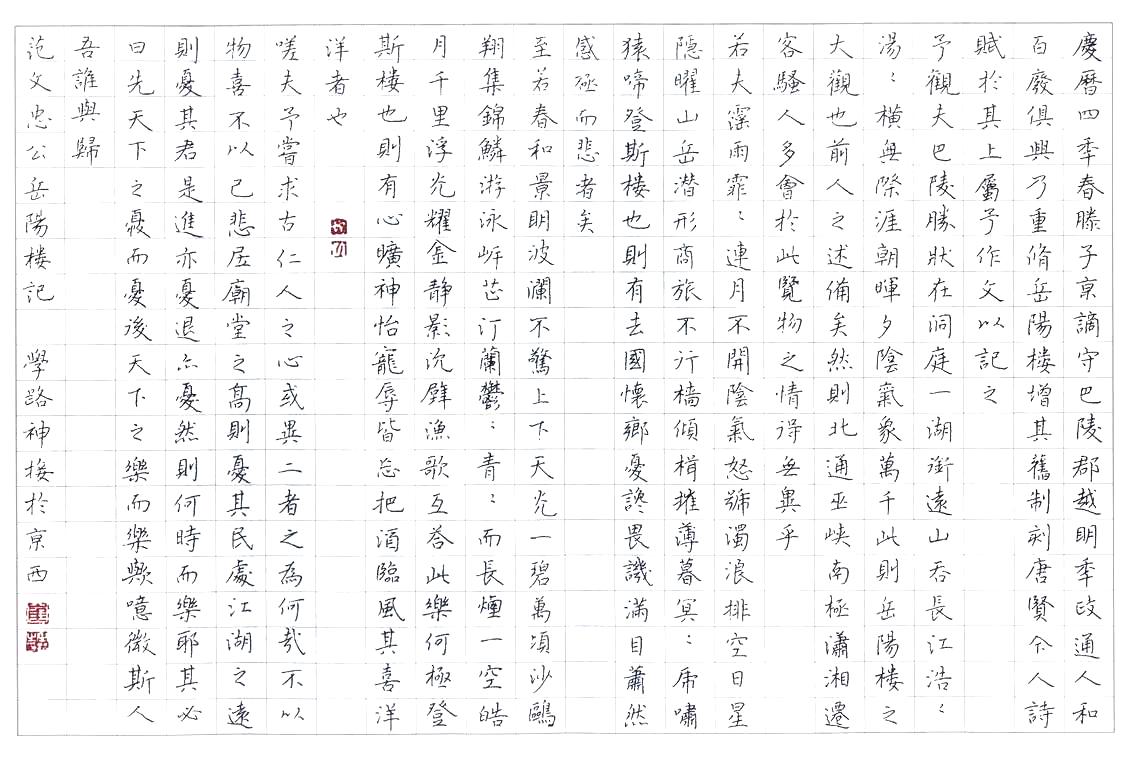 慶曆四年春滕子京謫守巴陵郡越明年政通人和
百廢俱興乃重脩岳陽樓增其舊制刻唐賢今人詩
賦於其上屬予作文以記之
予觀夫巴陵勝狀在洞庭一湖銜遠山吞長江浩〻
湯〻橫無際涯朝暉夕陰氣象萬千此則岳陽樓之
大觀也前人之述備矣然則北通巫峽南極瀟湘遷
客騷人多會於此覽物之情得無異乎
若夫霪雨霏〻連月不開陰氣怒號濁浪排空日星
隱曜山岳潛形商旅不行檣傾楫摧薄暮冥〻虎嘯
猿啼登斯樓也則有去國懷鄉憂讒畏譏滿目蕭然
感極而悲者矣
至若春和景明波瀾不驚上下天光一碧萬頃沙鷗
翔集錦鱗游泳岸芷汀蘭鬱〻青〻而長煙一空皓
月千里浮光耀金靜影沉璧漁歌互答此樂何極登
斯樓也則有心曠神怡寵辱皆忘把酒臨風其喜洋
洋者也
嗟夫予嘗求古仁人之心或異二者之為何哉不以
物喜不以己悲居廟堂之高則憂其民處江湖之遠
則憂其君是進亦憂退亦憂然則何時而樂耶其必
曰先天下之憂而憂後天下之樂而樂歟噫微斯人
吾誰與歸
范文忠公岳陽樓記 學路神接於京西